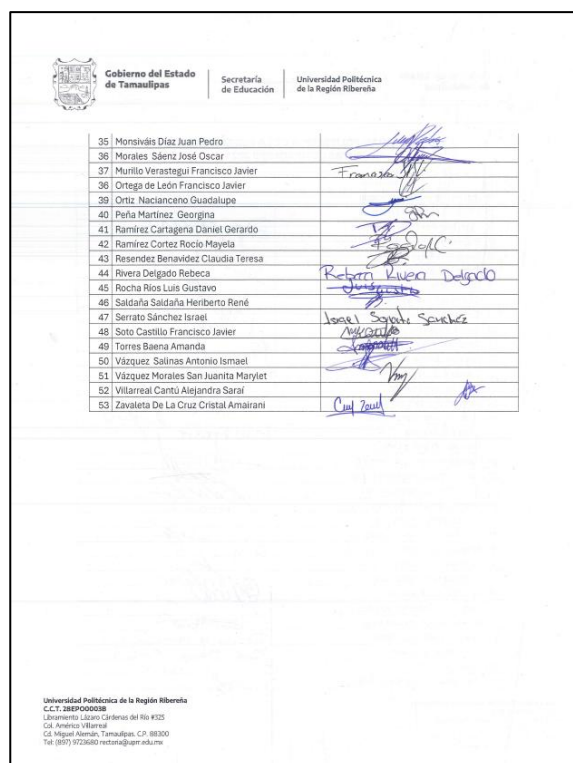 Gobierno del Estado
de Tamaulipas
Secretaría
de Educación
Universidad Politécnica
de la Región Ribereña
35 Monsiváis Díaz Juan Pedro
36 Morales Sáenz José Oscar
37 Murillo Verastegui Francisco Javier Francisco
36 Ortega de León Francisco Javier
39 Ortiz Nacianceno Guadalupe
40 Peña Martínez Georgina
41 Ramírez Cartagena Daniel Gerardo
42 Ramírez Cortez Rocío Mayela
43 Resendez Benavidez Claudia Teresa
44 Rivera Delgado Rebeca Rebeca Rivera Delgado
45 Rocha Rios Luis Gustavo
46 Saldaña Saldaña Heriberto René
47 Serrato Sánchez Israel Israel Serrato Sanchez
48 Soto Castillo Francisco Javier
49 Torres Baena Amanda
50 Vázquez Salinas Antonio Ismael
51 Vázquez Morales San Juanita Marylet
52 Villarreal Cantú Alejandra Saraí
53 Zavaleta De La Cruz Cristal Amairani
Universidad Politécnica de la Región Ribereña
C.C.T. 28EPO0003B
Libramiento Lázaro Cárdenas del Río #325
Col. Américo Villarreal
Cd. Miguel Alemán, Tamaulipas. C.P. 88300
Tel: (897) 9723680 rectoria@uprr.edu.mx